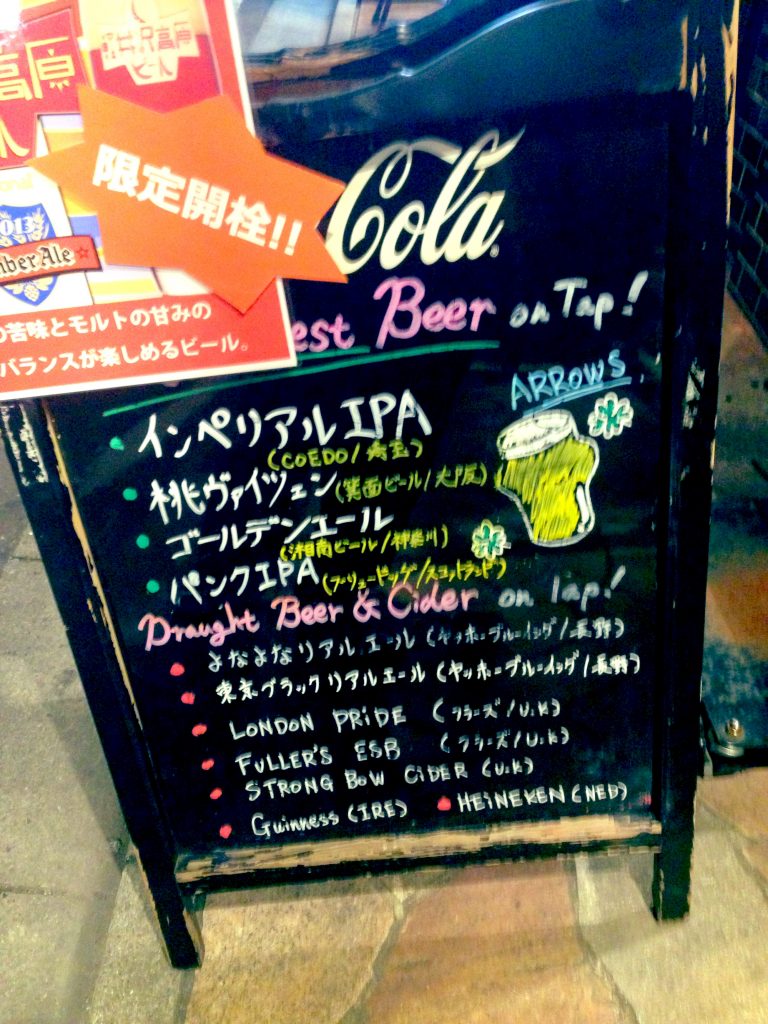 高原
井沢高原
ビール
限定開栓!!
2013
mber Ale
の苦味とモルトの甘みの
バランスが楽しめるビール。
Cola
est Beer on Tap!
ARROWS
インペリアルIPA
(COEDO/埼玉)
桃ヴァイツェン(箕面ビール/大阪)
ゴールデンエール
(湘南ビール/神奈川)
パンクIPA(ブリュードッグ/スコットランド)
Draught Beer & Cider on Tap!
よなよなリアルエール(ヤッホーブルーイング/長野)
東京ブラックリアルエール(ヤッホーブルーイング/長野)
LONDON PRIDE (フラーズ/U.K)
FULLER'S ESB (フラーズ/U.K)
STRONG BOW CIDER (U.K)
Guinness (IRE) HEINEKEN (NED)